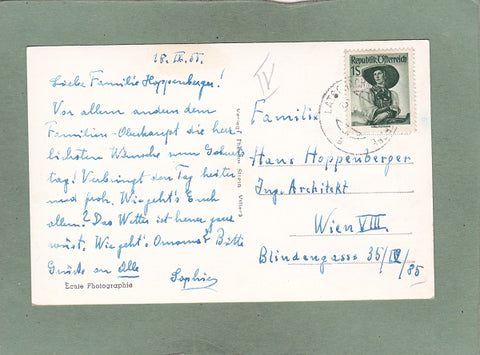 18.IX.55.
Liebe Familie Hoppenberger!
Vor allem andern dem
Familien-Oberhaupt die herz
lichsten Wünsche zum Geburts
tag! Verbringt den Tag heiter
und froh. Wie geht's Euch
allen? Das Wetter ist heuer ganz
wüst. Wie geht's Omama? Bitte
Grüße an Alle
Sophie
Echte Photographie
IV
Republik Österreich
1S
Familie
Hans Hoppenberger
Ing. Architekt
Wien VIII
Blindengasse 35/IV/85